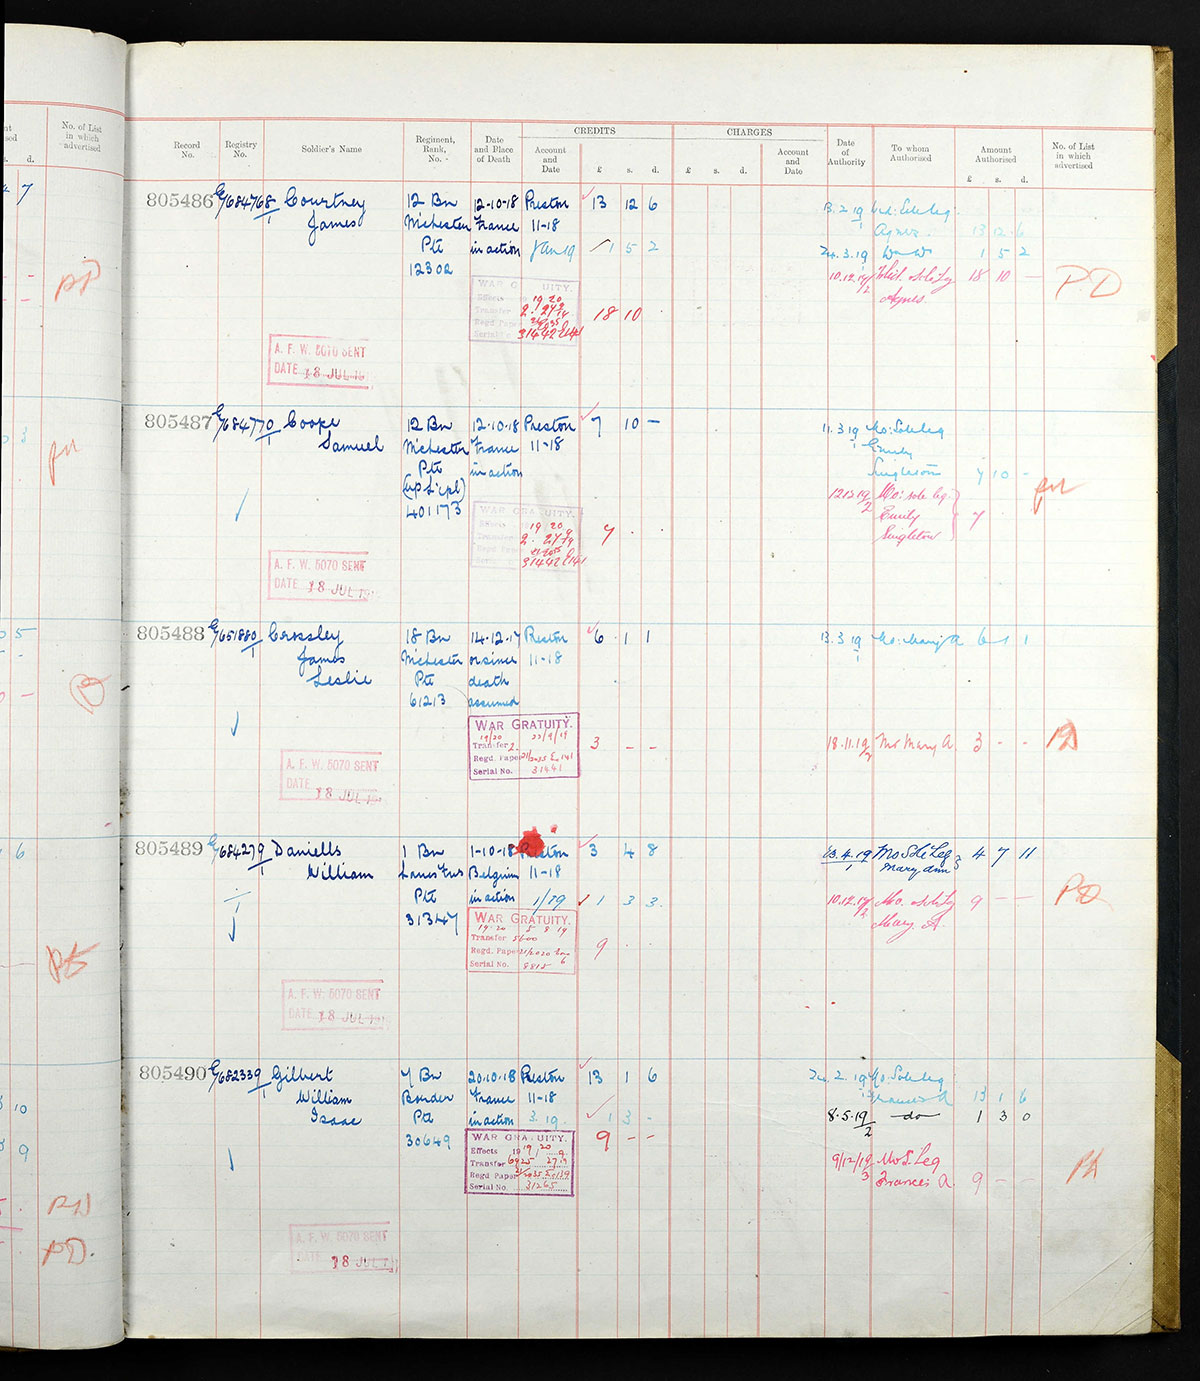 No. of List in which advertised
s. d.
Record No.
Registry No.
Soldier's Name
Regiment, Rank, No.
Date and Place of Death
CREDITS
Account and Date
£ s. d.
CHARGES
£ s. d.
Account and Date
Date of Authority
To whom Authorised
Amount Authorised
£ s. d.
No. of List in which advertised
805486 E/684768/1 Courtney 12 Bn 12-10-18 Preston 13 12 6 13.2.19 Wid: Sole Leg:
James M'chester France 11-18 Agnes 13 12 6
Pte in action Jan 19 1 5 2 24.3.19 1 5 2
12302 10.12.19 Agnes 18 10 — PD
WAR GRATUITY.
Effects 19 20
Transfer 2.
Regd. Paper
Serial 31442 E141
18 10
A. F. W. 5070 SENT
DATE 18 JUL 19
805487 E/684770/1 Cooke 12 Bn 12-10-18 Preston 7 10 — 11.3.19 Mo: Sole Leg
Samuel M'chester France 11-18 Emily
Pte in action Singleton 7 10 -
(up L/cpl) Mo: sole leg:
401173 Emily 7
Singleton
WAR GRATUITY.
Effects 19 20
Transfer 2.
Regd Paper
31442 E141
7
A. F. W. 5070 SENT
DATE 18 JUL 19
805488 E/651880/1 Crossley 18 Bn 14-12-17 Preston 6 1 1 13.3.19 Mo: Mary A 6 1 1
James M'chester or since 11-18
Leslie Pte death
61213 assumed
WAR GRATUITY.
19/20 22/9/19
Transfer 2.
Regd. Paper E 141
Serial No. 31441
3 - - 18.11.19/2 Mr Mary A. 3 - -
A. F. W. 5070 SENT
DATE 18 JUL 19
805489 E/684279/1 Daniells 1 Bn 1-10-18 Preston 3 4 8 23.4.19/1 Mo Sole Leg 4 7 11
William Lancs Fus Belgium 11-18 Mary Ann
Pte in action 1/19 1 3 3 10.12.19/3 Mo. 9 - - PD
31347 Mary A.
WAR GRATUITY.
19-20 5 8 19
Transfer 5600
Regd. Paper
Serial No. 8818
9
A. F. W. 5070 SENT
DATE 18 JUL 19
805490 E/682339/1 Gilbert 7 Bn 20.10.18 Preston 13 1 6 24.2.19 Mo: Sole Leg
William Border France 11-18 Frances A 13 1 6
Isaac Pte in action 3.19 1 3 - 8.5.19/2 do 1 3 0
30649
WAR GRATUITY.
Effects 19 19/20
Transfer 6925
Regd Paper
Serial No. 31265
9 - - 9/12/19/3 Mo S. Leg
Frances A. 9 - -
A. F. W. 5070 SENT
DATE 18 JUL 19